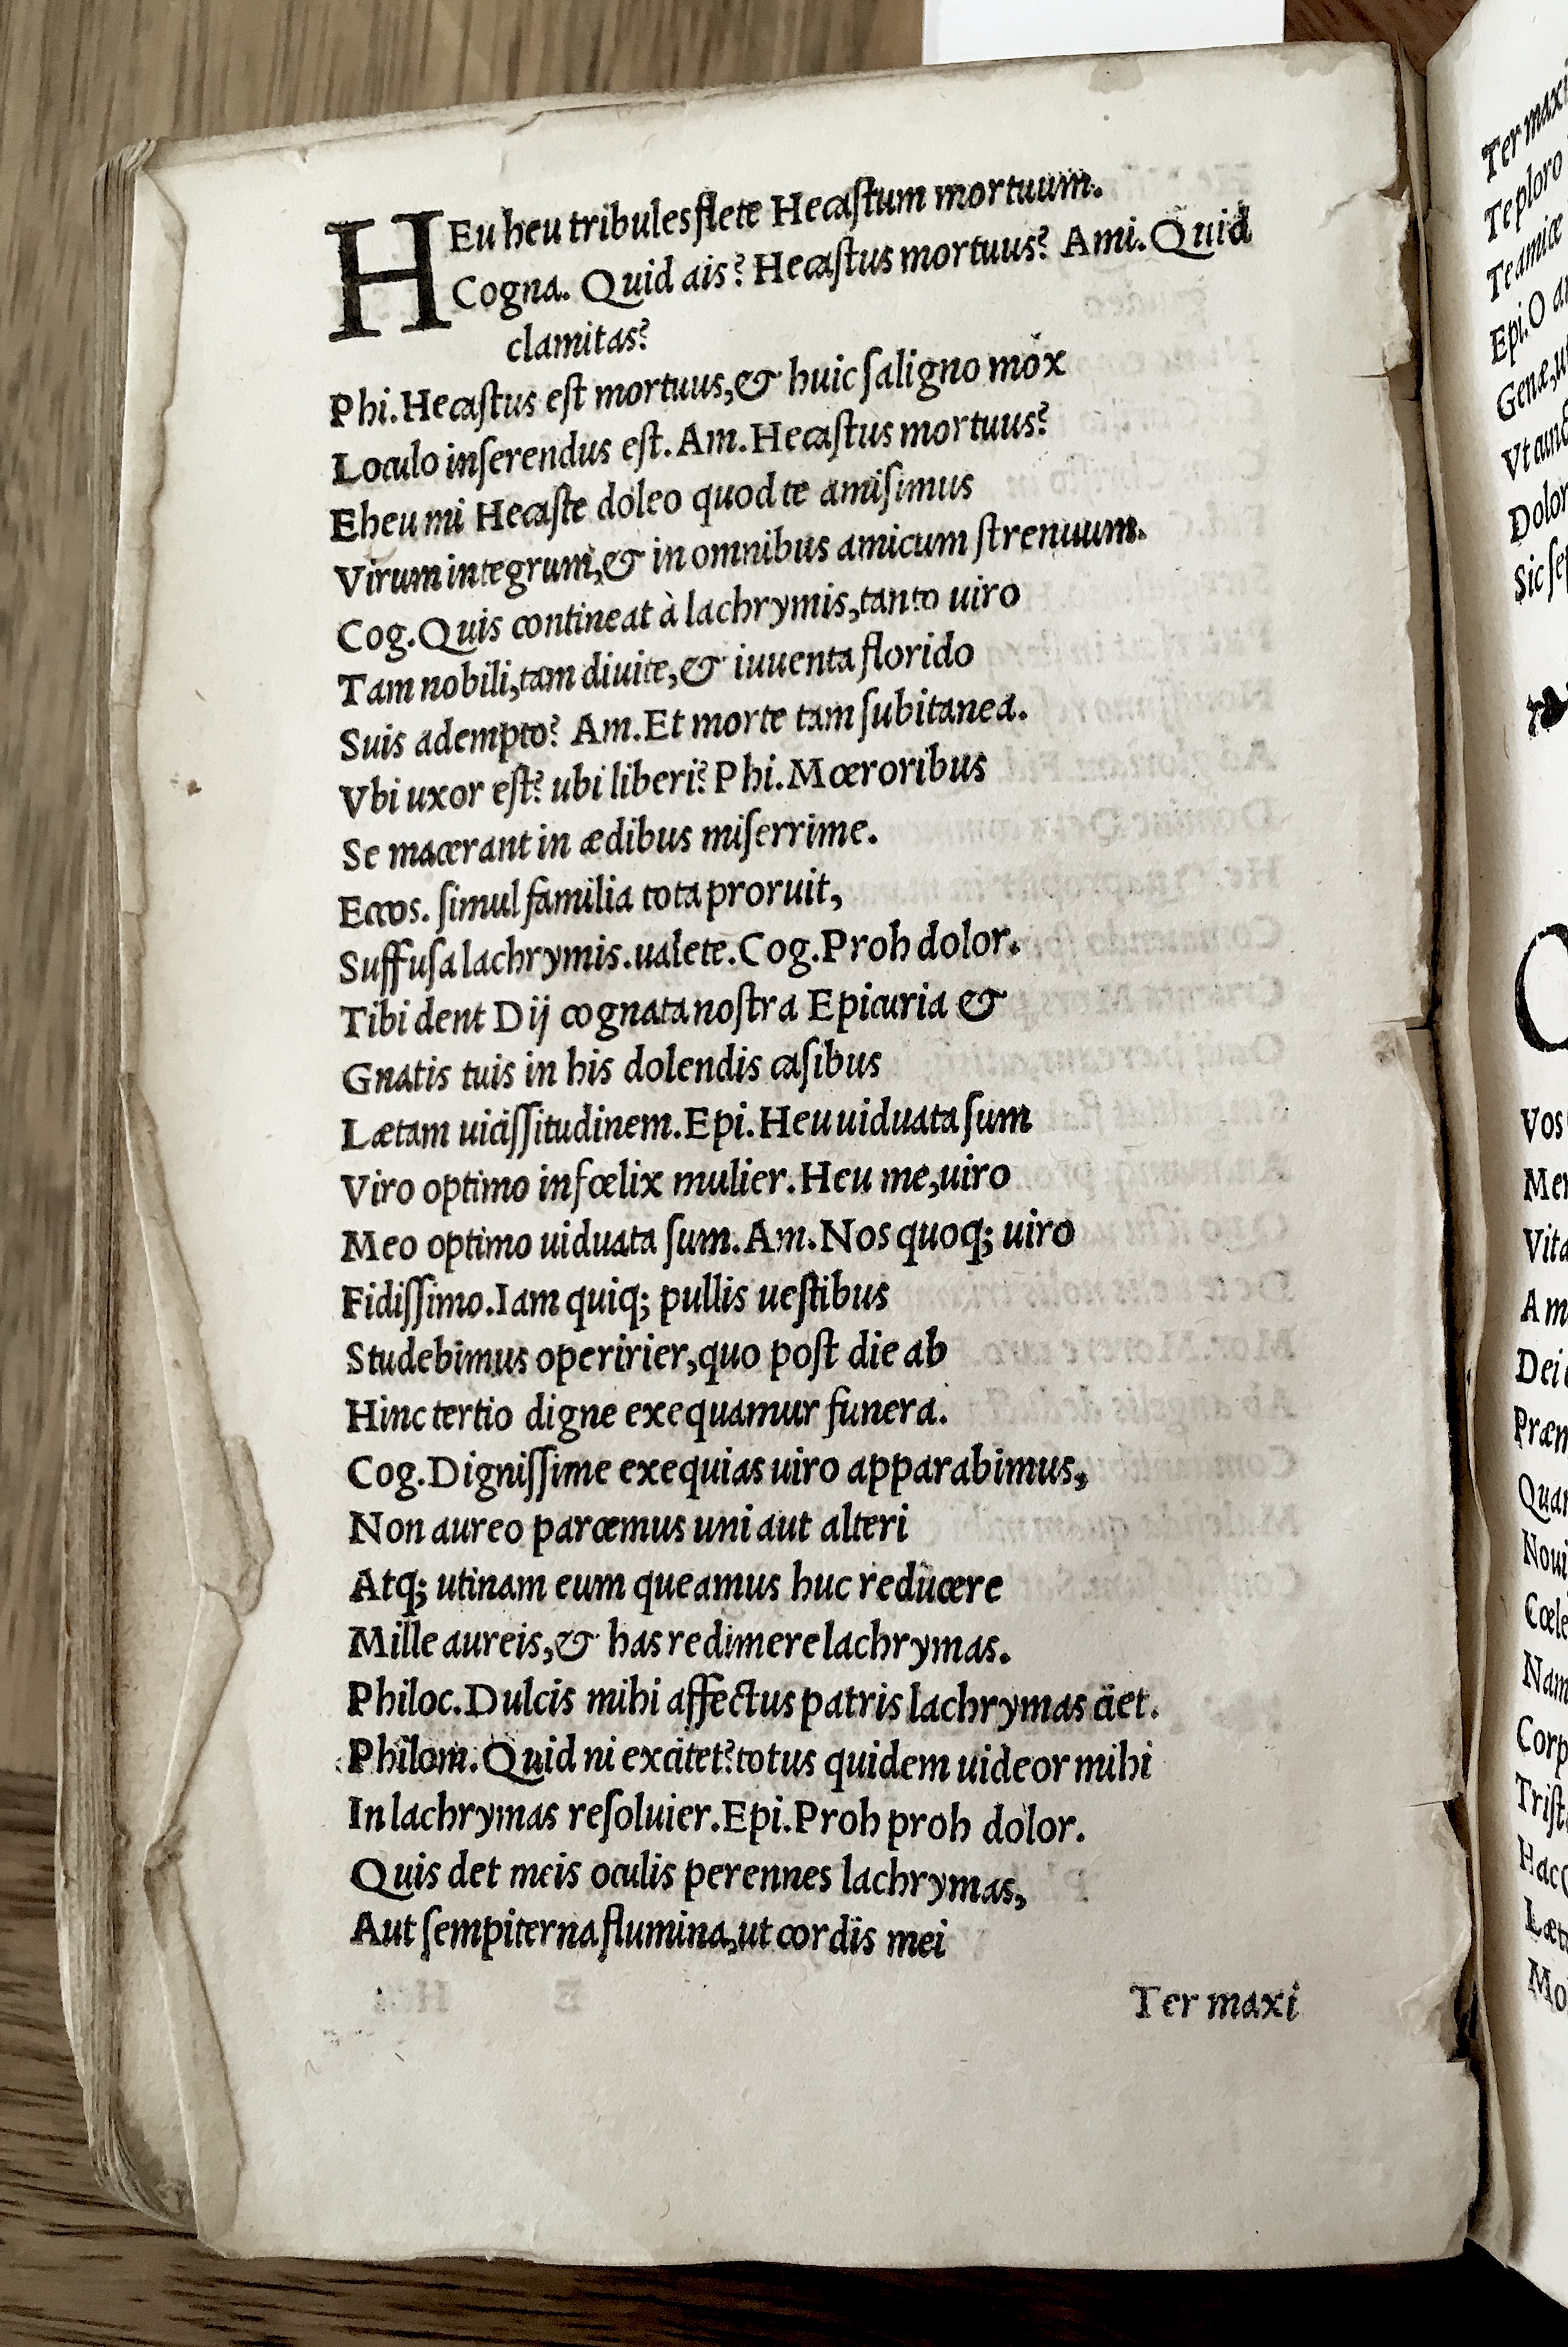 HEu heu tribules flete Hecaſtum mortuum.
Cogna. Quid ais? Hecaſtus mortuus? Ami. Quid
clamitas?
Phi. Hecaſtus eſt mortuus, & huic ſaligno mox
Loculo inſerendus eſt. Am. Hecaſtus mortuus?
Eheu mi Hecaſte doleo quod te amiſimus
Virum integrum, & in omnibus amicum ſtrenuum.
Cog. Quis contineat à lachrymis, tanto uiro
Tam nobili, tam diuite, & iuuenta florido
Suis adempto? Am. Et morte tam ſubitanea.
Vbi uxor eſt? ubi liberi? Phi. Mœroribus
Se macerant in ædibus miſerrime.
Eccos. ſimul familia tota proruit,
Suffuſa lachrymis. ualete. Cog. Proh dolor.
Tibi dent Dij cognata noſtra Epicuria &
Gnatis tuis in his dolendis caſibus
Lætam uiciſſitudinem. Epi. Heu uiduata ſum
Viro optimo infœlix mulier. Heu me, uiro
Meo optimo uiduata ſum. Am. Nos quoq; uiro
Fidiſſimo. Iam quiq; pullis ueſtibus
Studebimus operirier, quo poſt die ab
Hinc tertio digne exequamur funera.
Cog. Digniſſime exequias uiro apparabimus,
Non aureo parcemus uni aut alteri
Atq; utinam eum queamus huc reducere
Mille aureis, & has redimere lachrymas.
Philoc. Dulcis mihi affectus patris lachrymas ciet.
Philom. Quid ni excitet? totus quidem uideor mihi
In lachrymas reſoluier. Epi. Proh proh dolor.
Quis det meis oculis perennes lachrymas,
Aut ſempiterna flumina, ut cordis mei
Ter maxi
Ter maxi
Te ploro
Te amicæ
Epi. O
Genæ,
Vt
Dolor
Sic
Vos
Vita
Am
Dei
Præm
Cœle
Nam
Corp
Triſt
Læt
Mo